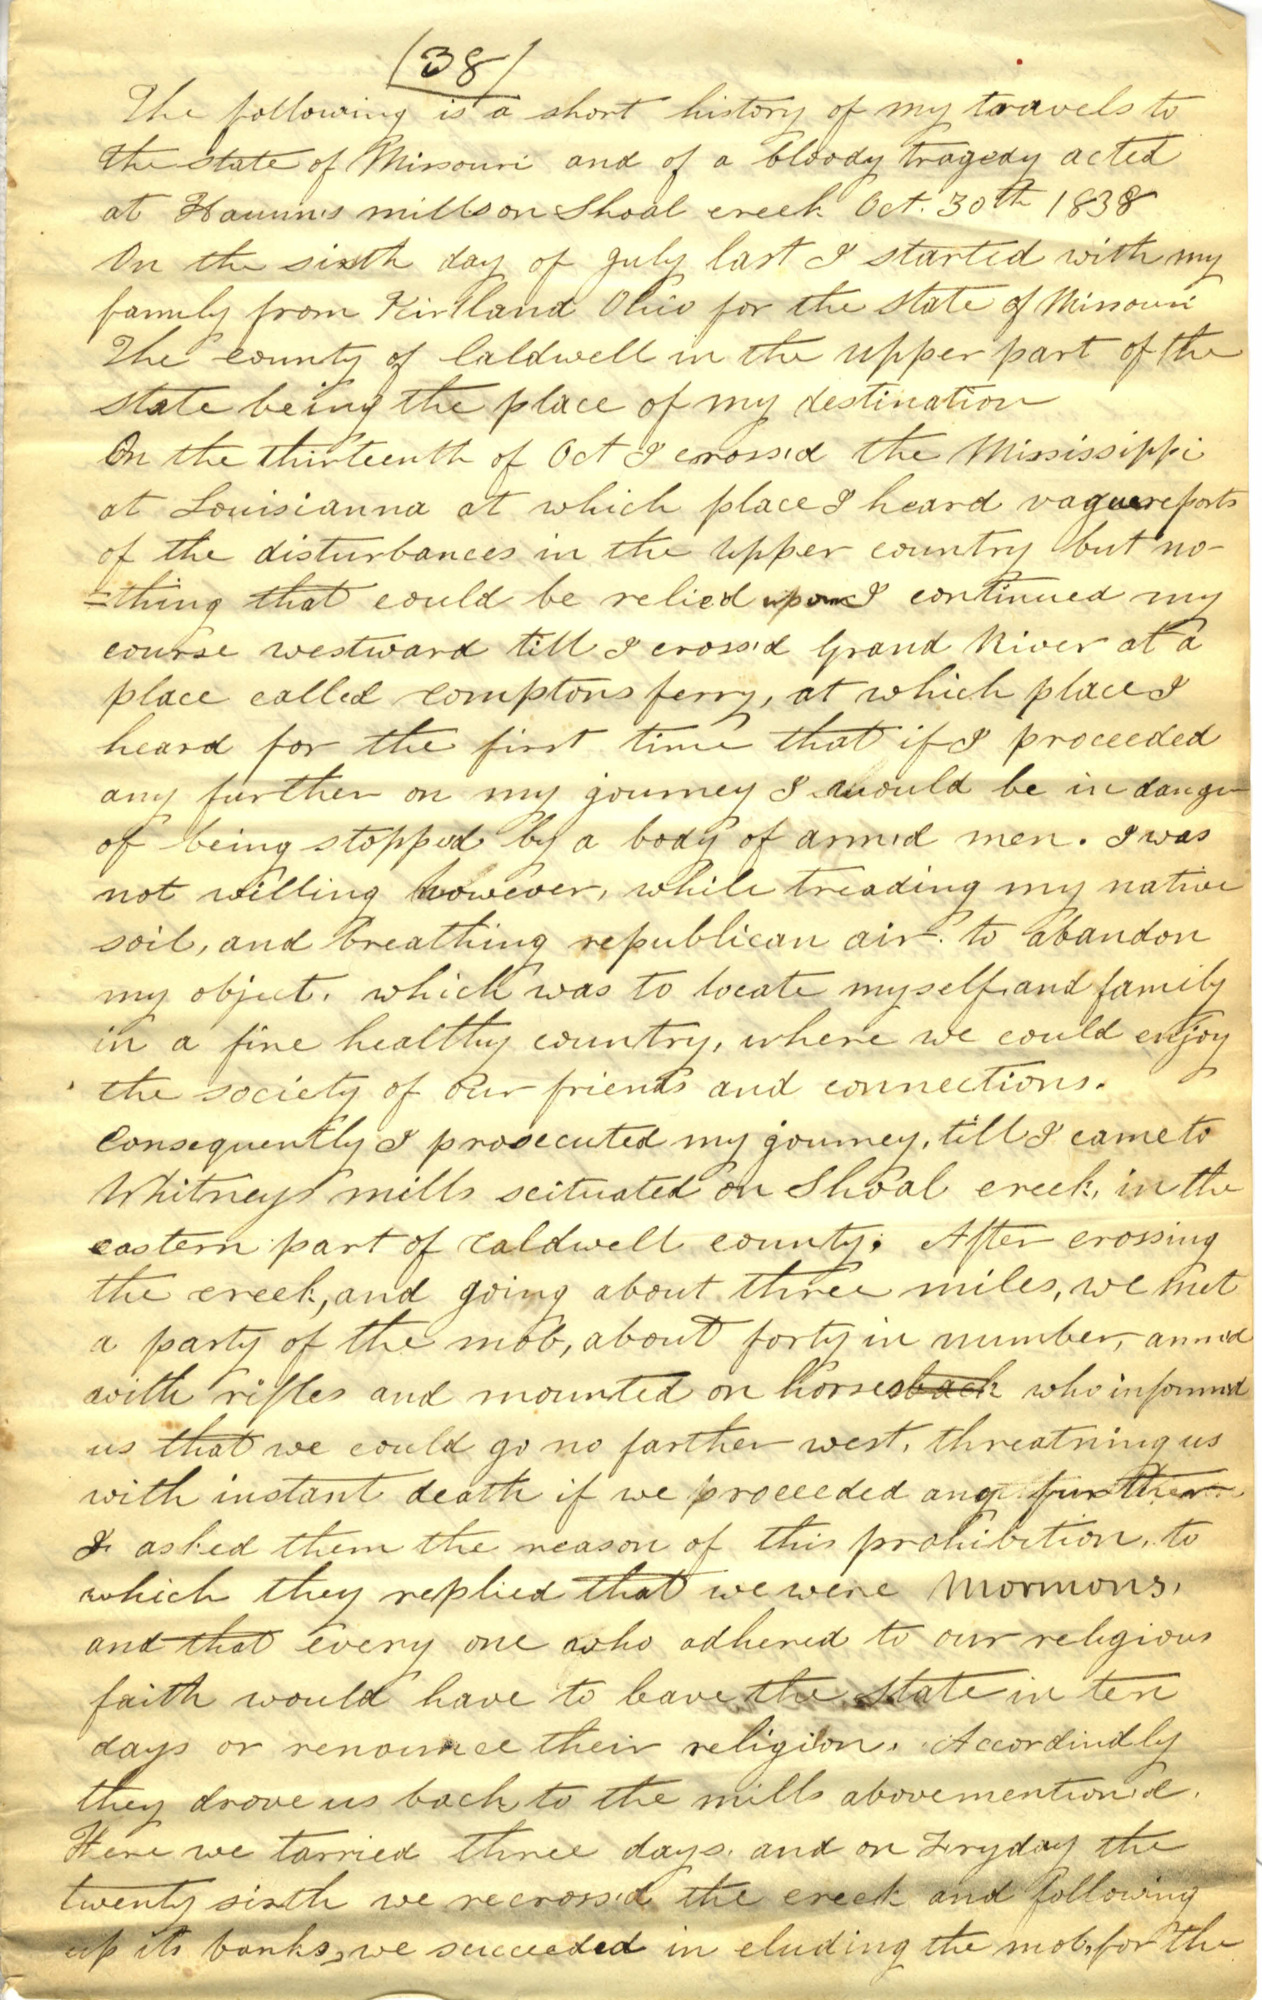 (38)
The following is a short history of my travels to
the state of Missouri and of a bloody tragedy acted
at Hauun's mills on Shoal creek Oct. 30th 1838
On the sixth day of July last I started with my
family from Kirtland Ohio for the state of Missouri
The county of Caldwell in the upper part of the
state being the place of my destination
On the thirteenth of Oct I cross'd the Mississippi
at Louisianna at which place I heard vague reports
of the disturbances in the upper country but no-
=thing that could be relied upon I continued my
course westward till I cross'd Grand River at a
place called Comptons ferry, at which place I
heard for the first time that if I proceeded
any further on my journey I would be in danger
of being stopped by a body of arm'd men. I was
not willing however, while treading my native
soil, and breathing republican air. to abandon
my object. which was to locate myself and family
in a fine healthy country, where we could enjoy
the society of our friends and connections.
Consequently I prosecuted my journey, till I came to
Whitneys mills scituated on Shoal creek, in the
eastern part of Caldwell county. After crossing
the creek, and going about three miles, we met
a party of the mob, about forty in number, arm'd
with rifles and mounted on horsesback who inform'd
us that we could go no farther west, threatning us
with instant death if we proceeded any further
I asked them the reason of this prohibition, to
which they replied that we were Mormons,
and that every one who adhered to our religious
faith would have to leave the state in ten
days or renounce their religion. Accordindly
they drove us back to the mills above mention'd.
Here we tarried three days. and on Fryday the
twenty sixth we recross'd the creek and following
up its banks, we succeeded in eluding the mob, for the